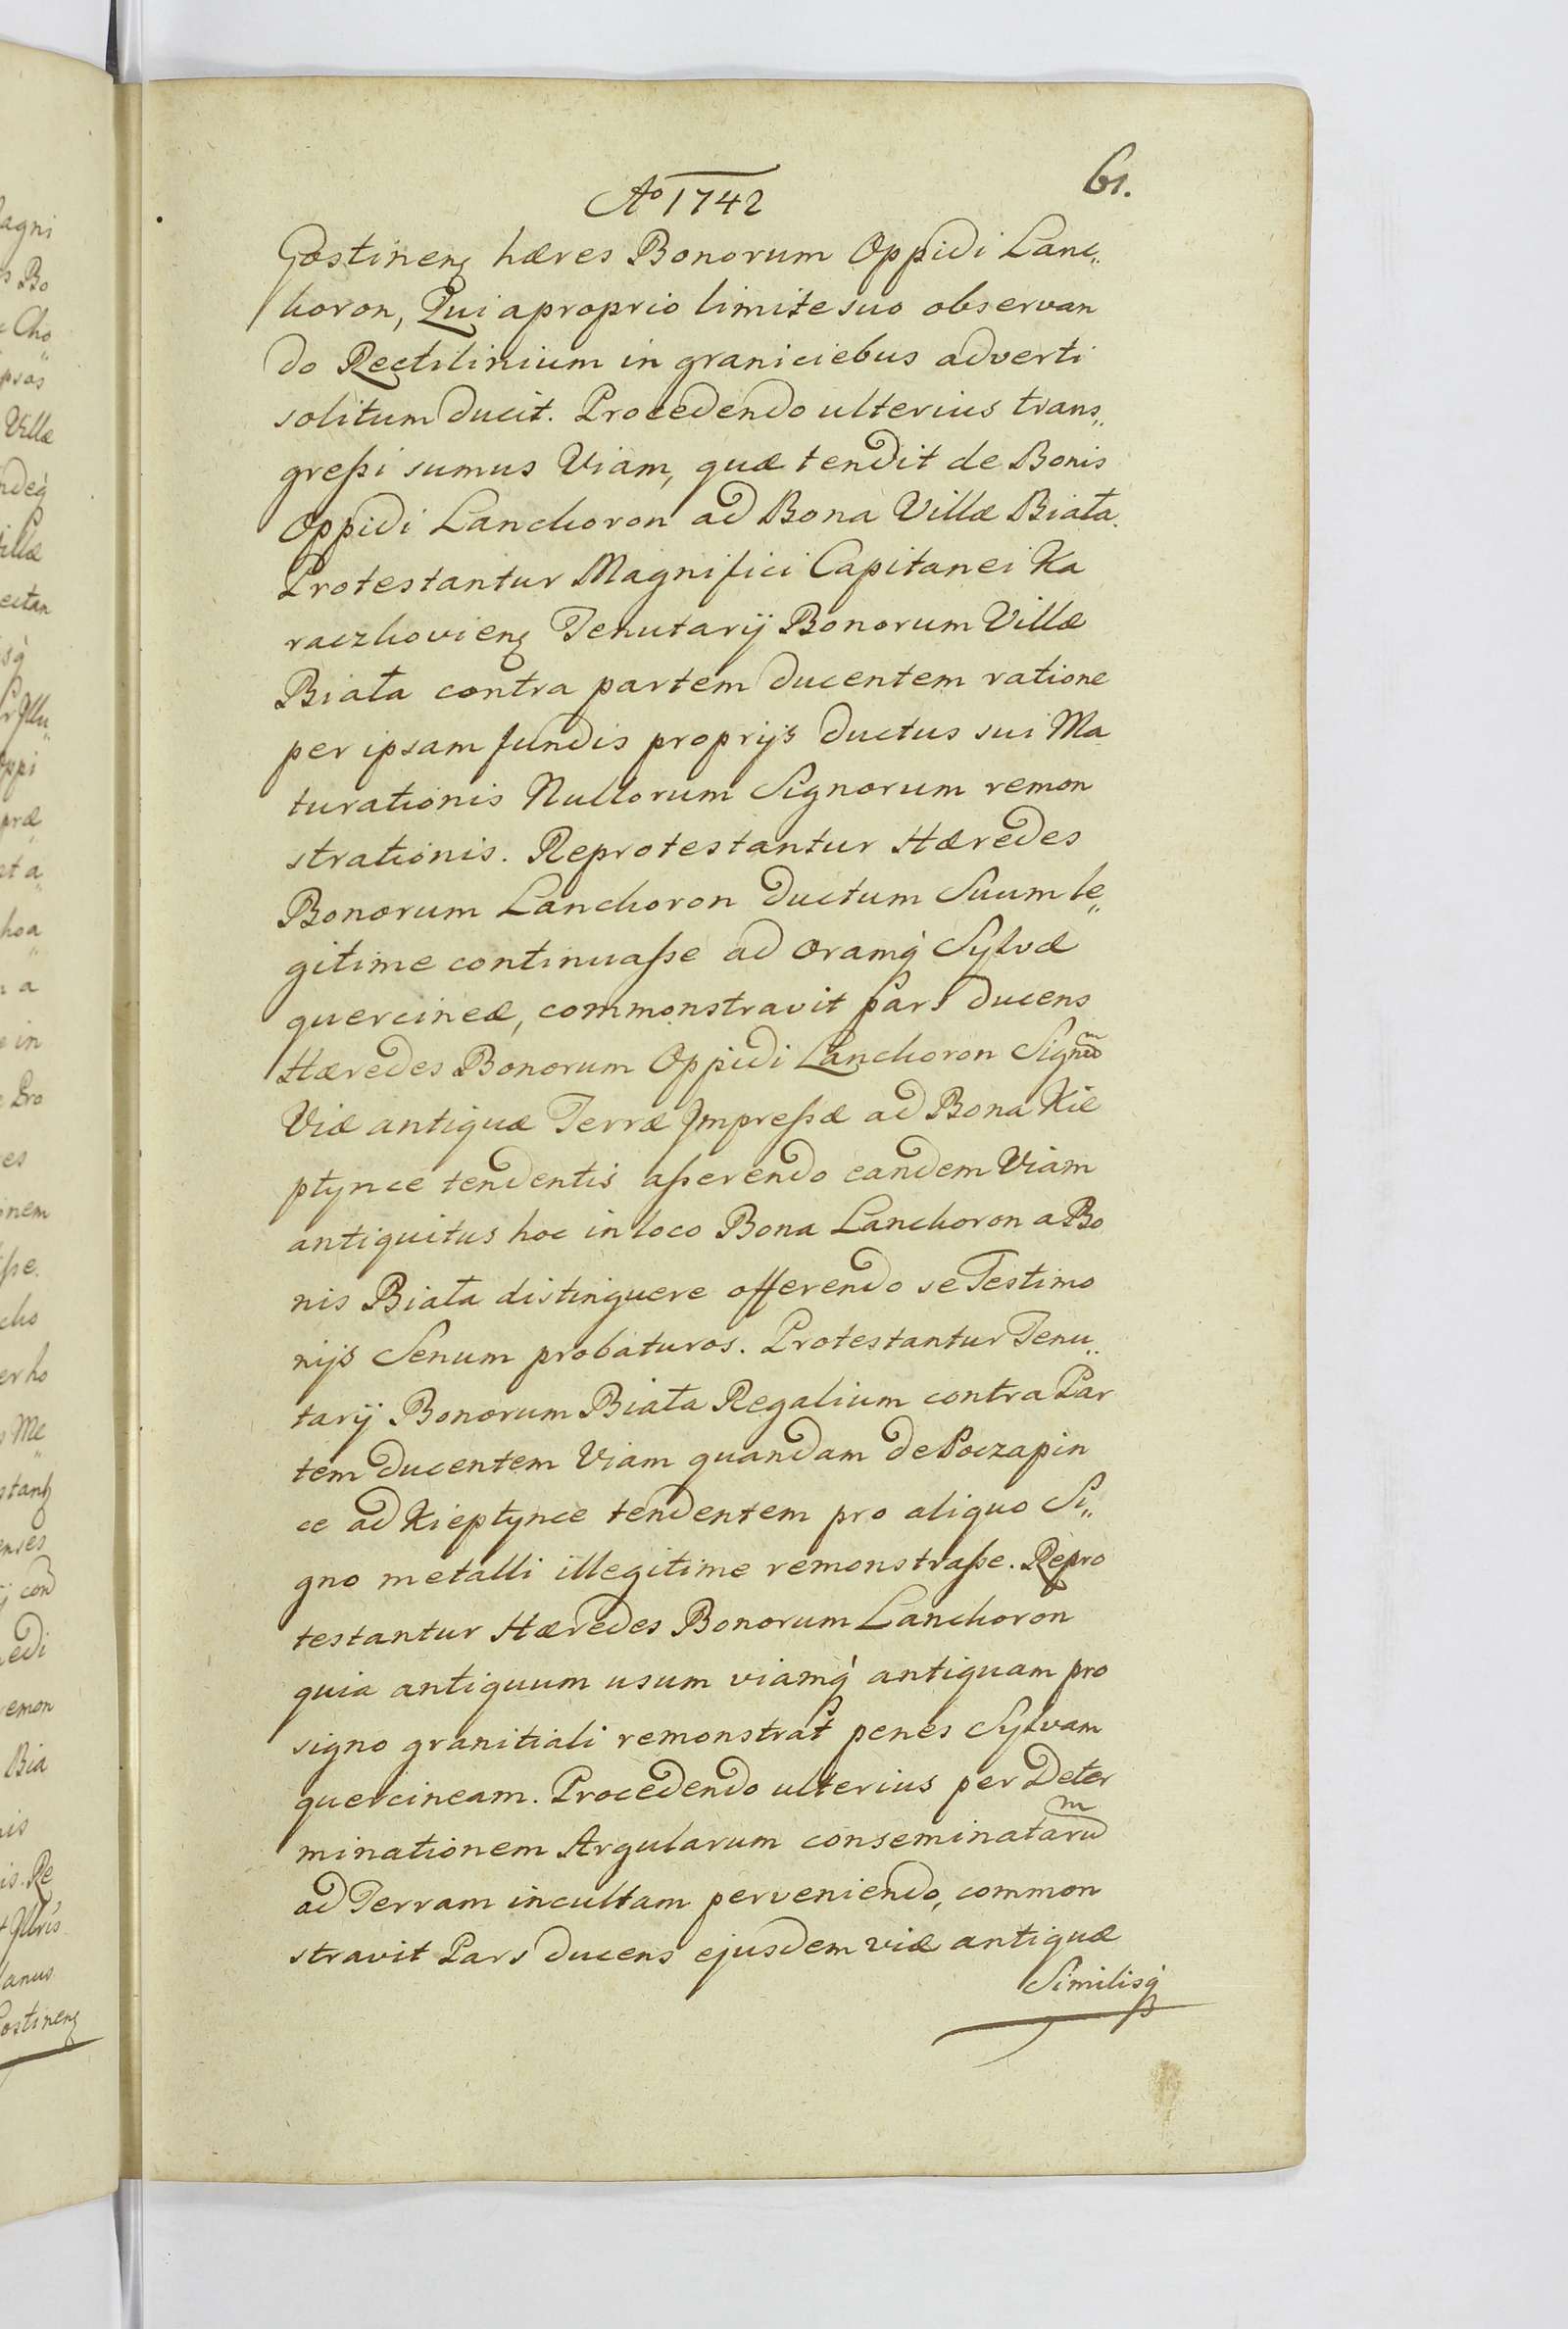 Aº 1742
61.
Gostinenꝫ hæres Bonorum Oppidi Lanc„
koron, Qui a proprio limite suo observan
do Rectilinium in graniciebus adverti
solitum ducit. Procedendo ulterius trans„
greſsi sumus Viam, quæ tendit de Bonis
Oppidi Lanckoron ad Bona Villæ Biała.
Protestantur Magnifici Capitanei Ka
raczkovienꝫ Tenutarij Bonorum Villæ
Biała contra partem ducentem ratione
per ipsam fundis proprijs ductus sui Ma
turationis Nullorum Signorum remon
strationis. Reprotestantur Hæredes
Bonorum Lanckoron ductum Suum le„
gitime continuaſse ad oramq́ Sylvæ
quercineæ, commonstravit pars ducens
Hæredes Bonorum Oppidi Lanckoron Signũ
Viæ antiquæ Terræ Impreſsæ ad Bona Kie
płynce tendentis aſserendo eandem Viam
antiquitus hoc in loco Bona Lanckoron a Bo
nis Biała distinguere offerendo se Testimo
nijs Senum probaturos. Protestantur Tenu„
tarij Bonorum Biała Regalium contra Par
tem ducentem Viam quandam de Poczapin
ce ad Kiepłynce tendentem pro aliquo Si„
gno metalli illegitime remonstraſse. Repro
testantur Hæredes Bonorum Lanckoron
quia antiquum usum viamq́ antiquam pro
signo granitiali remonstrat penes Sylvam
quercineam. Procedendo ulterius per Deter
minationem Argularum conseminatarũ
ad Terram incultam perveniendo, common
stravit Pars ducens ejusdem viæ antiquæ
Similisq́